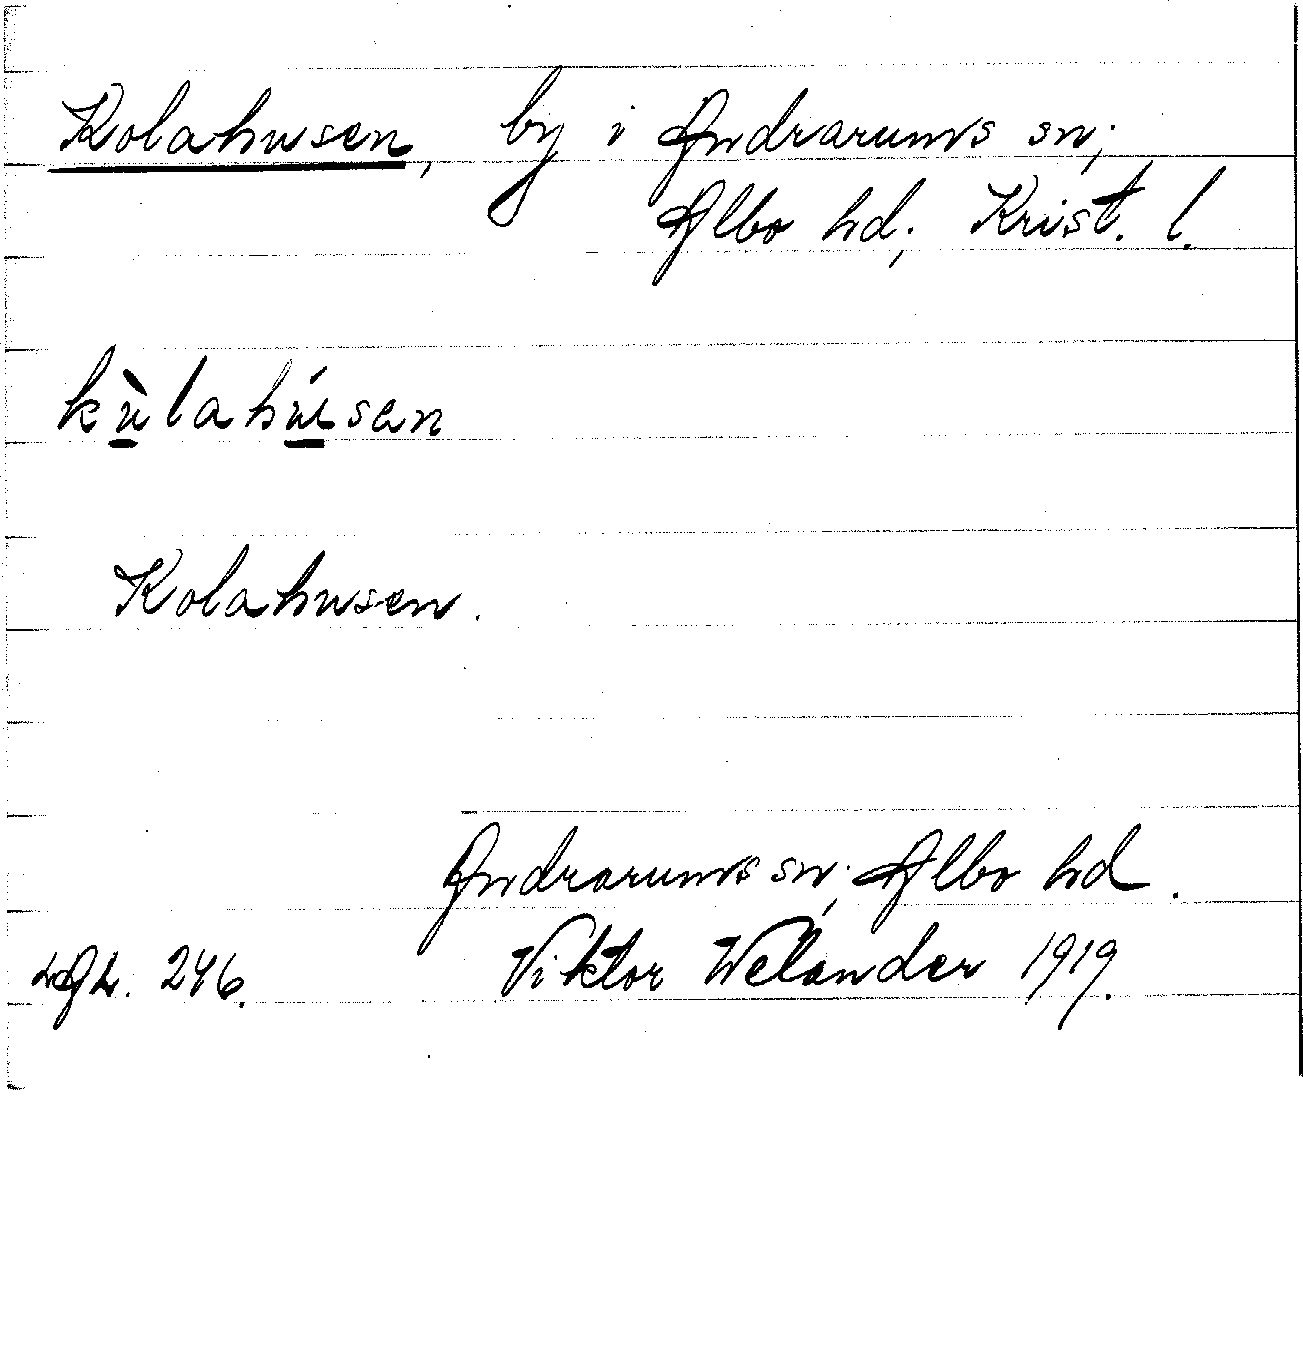 Kolahusen, by i Andrarums sn;
Albo hd; Krist. l.
kùlahúsen
Kolahusen.
Andrarums sn; Albo hd.
246. Viktor Welander 1919.